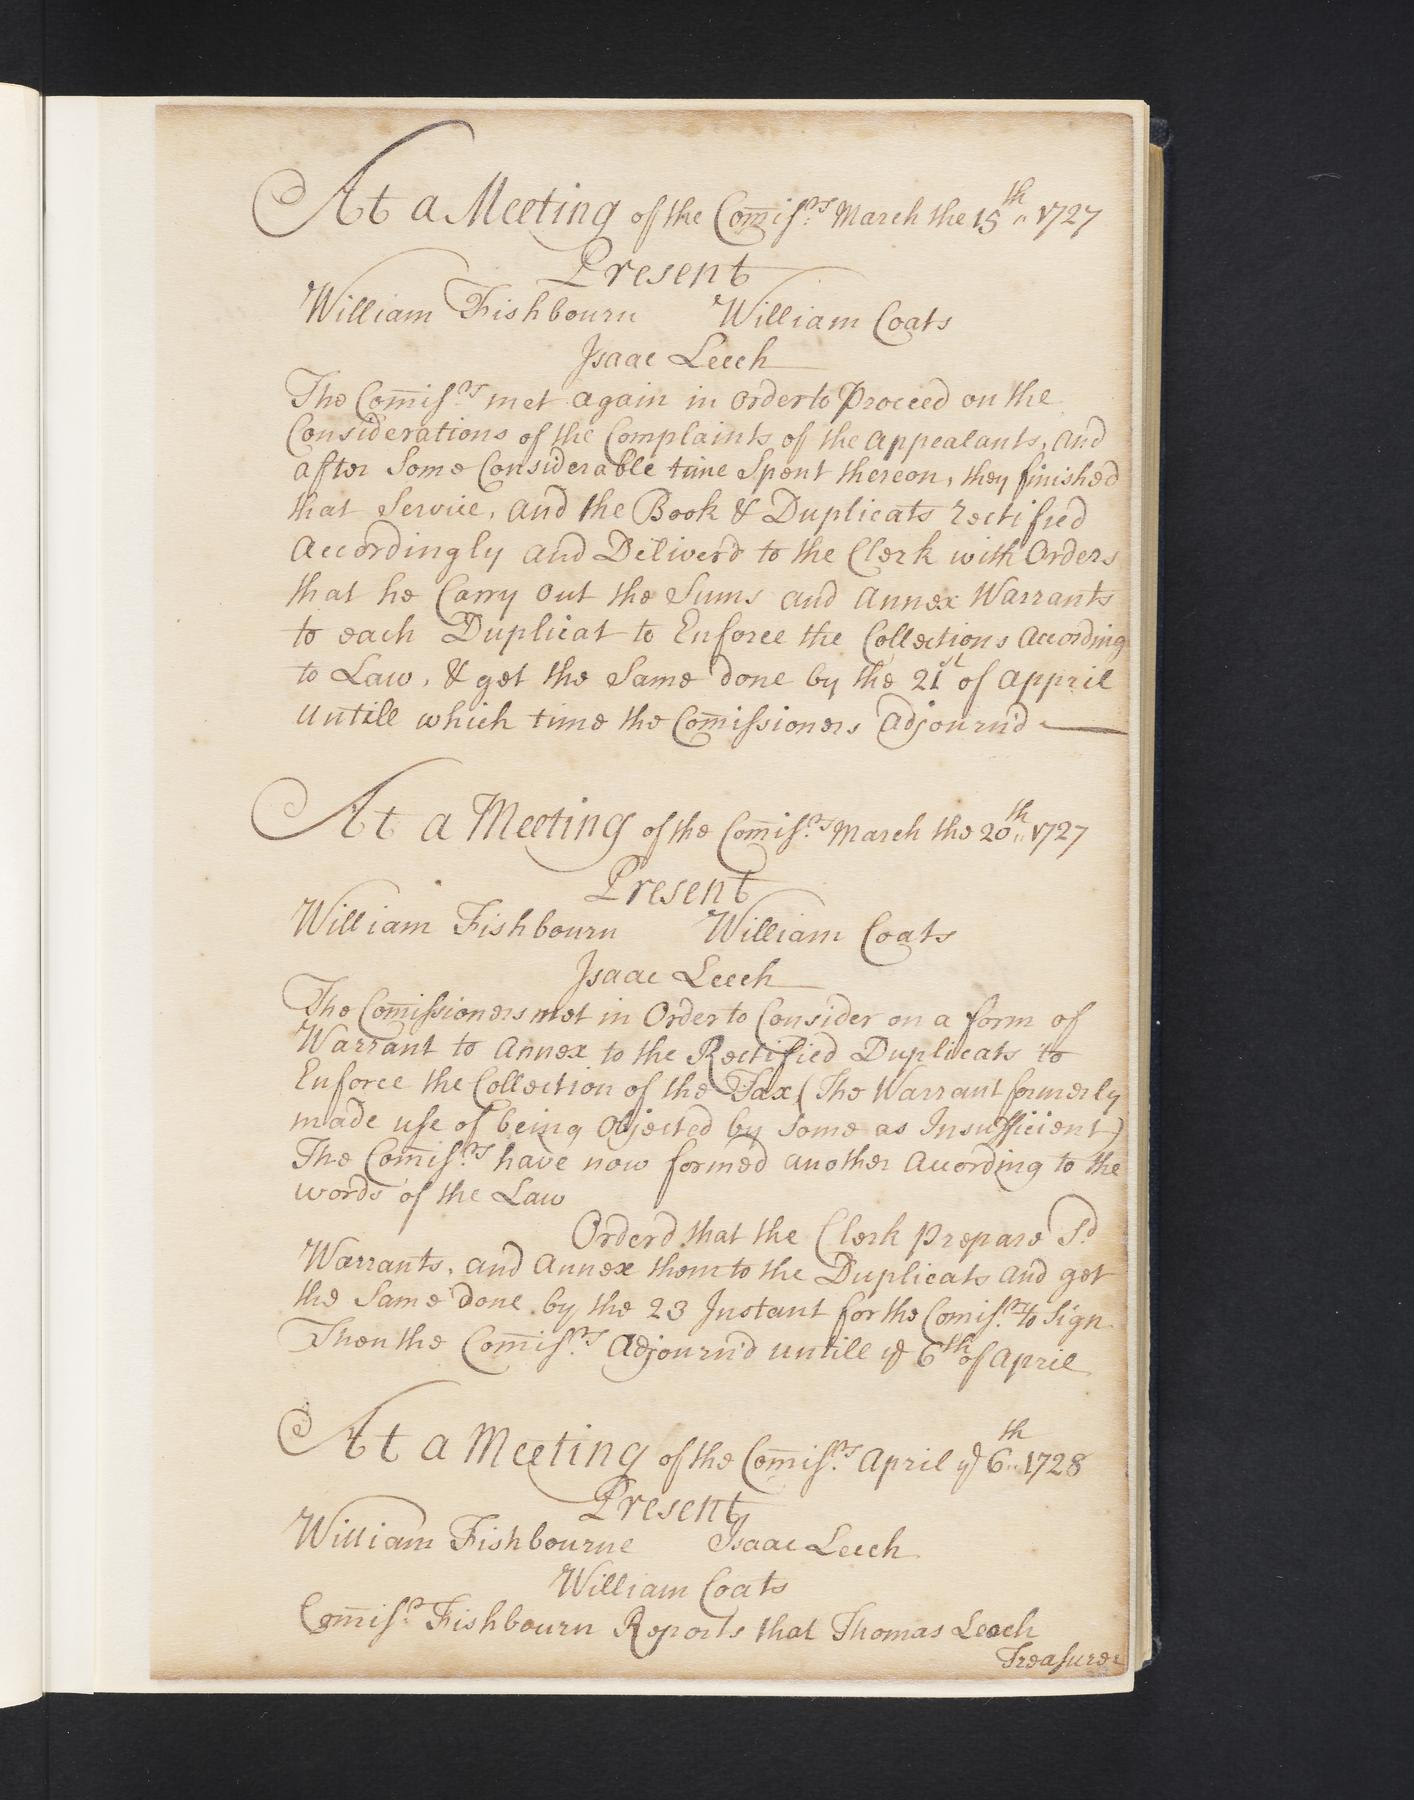 At a Meeting of the Com̄iſ:rs March the 15th 1727
Present
William Fishbourn William Coats
Isaac Leech
The Com̄iſrs met again in order to Proceed on the
Considerations of the Complaints of the appealants, and
after Some Considerable time Spent thereon, they finished
that Service, and the Book & Duplicats rectified
Accordingly and Deliver'd to the Clerk with Orders
that he Carry out the Sums and annex Warrants
to each Duplicat to Enforce the Collections According
to Law, & get the Same done by the 21st of appril
Untill which time the Com̄iſsioners adjourn'd
At a Meeting of the Com̄iſ:rs March the 20th 1727
Present
William Fishbourn William Coats
Isaac Leech
The Com̄iſsioners met in Order to Consider on a form of
Warrant to annex to the Rectified Duplicats to
Enforce the Collection of the Tax (The Warrant formerly
made uſe of being Objected by Some as Insufficient)
The Com̄iſ:rs have now formed another according to the
words of the Law
Order'd that the Clerk prepare Sd
Warrants, and annex them to the Duplicats and get
the Same done by the 23 Instant for the Comiſ:rs to Sign
Then the Com̄iſ:rs adjourn'd untill ye 6th of April
At a Meeting of the Com̄iſ:rs April ye 6th 1728
Present
William Fishbourne Isaac Leech
William Coats
Com̄iſ:r Fishbourn Reports that Thomas Leech
Treaſurer